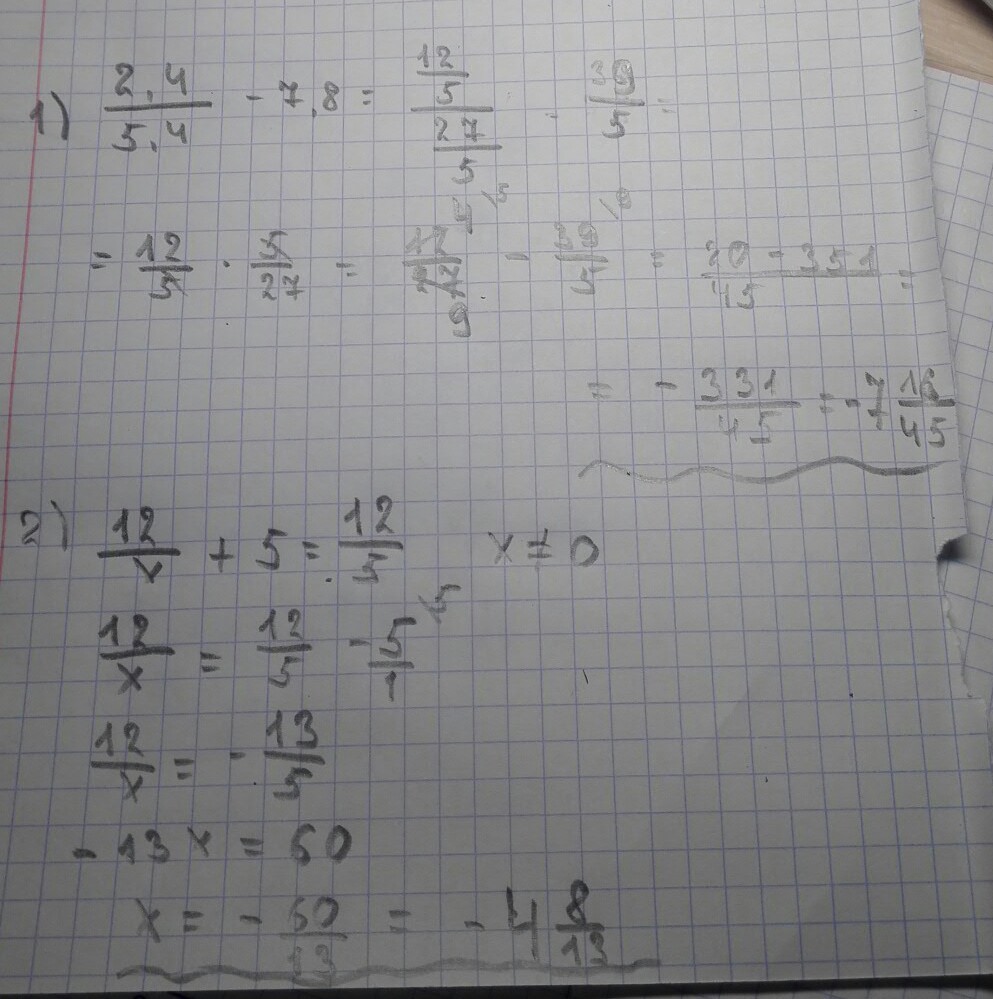 1) 2.4/5.4 - 7.8 = (12/5)/(27/5) - 39/5 =
= 12/5 · 5/27 = 12/27 9 /5 - 39/5 /9 = (20 - 351)/45 =
= - 331/45 = -7 16/45
2) 12/x + 5 = 12/5 x ≠ 0
12/x = 12/5 - 5/1 /5
12/x = - 13/5
- 13x = 60
x = - 60/13 = - 4 8/13